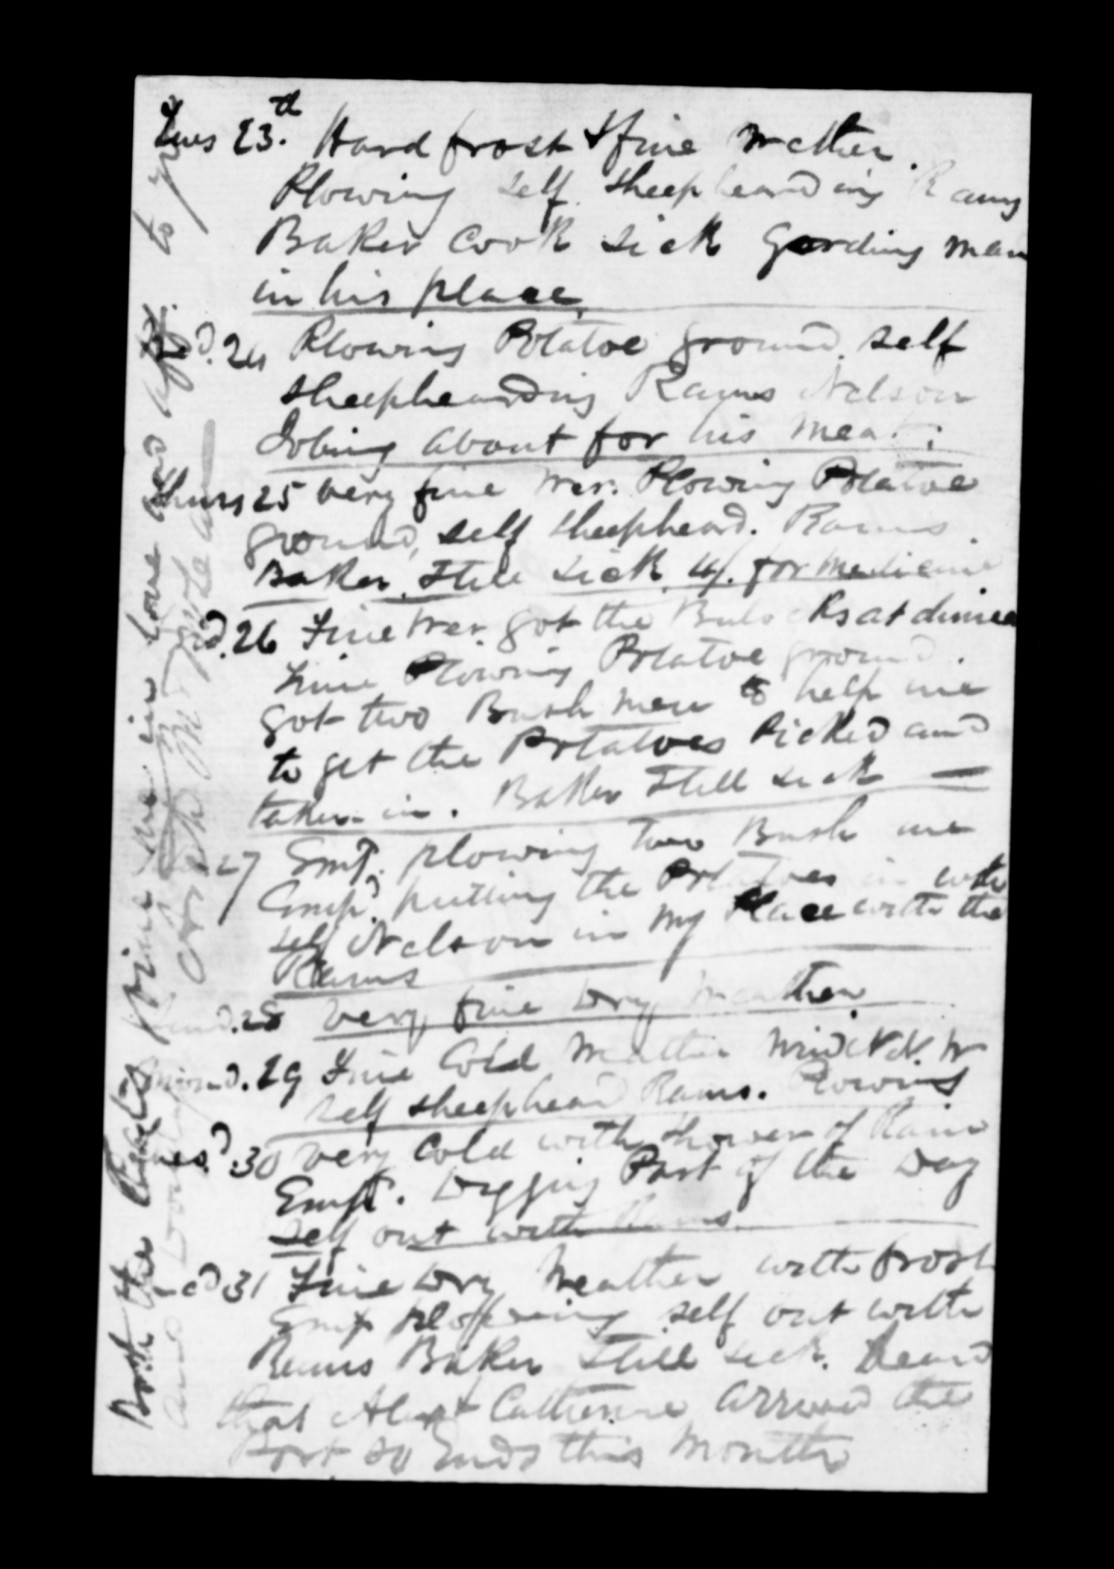 Tues 23.d Hard frost & fine Wether.
Plowing self. sheepheardwing Rams
Baker Cook Sick Gording man
in his place.
24 Plowing Potatoe ground. self
sheepheardwing Rams Nelson
Jobing about for his Meat.
Thurs 25 very fine Wer. Plowing Potatoe
ground, self sheepheard. Rams
Baker Still Sick for Medicine
26 Fine Wer. got the Bulocks at dinner
time Plowing Potatoe ground.
got two Bush men to help me
to get the Potatoes Picked and
taken in. Baker Still sick
27 Empd. plowing two Bush me
Empd. putting the Potatoes in with
self Nelson in my Place with the
Rams
28 very fine Dry Weather
Mond. 29 Fine Cold Weather Wind N.W
self sheepheard Rams. Plowing
Tuesd. 30 very Cold with shower of Rain
Empd. Digging Part of the Day
self out with Rams
31 Fine Dry Weather with frost
Emp self out with
Rams Baker Still sick. Heard
that Catherine arrived the
Port so Ends this Month
Both the join me in love and
to
and